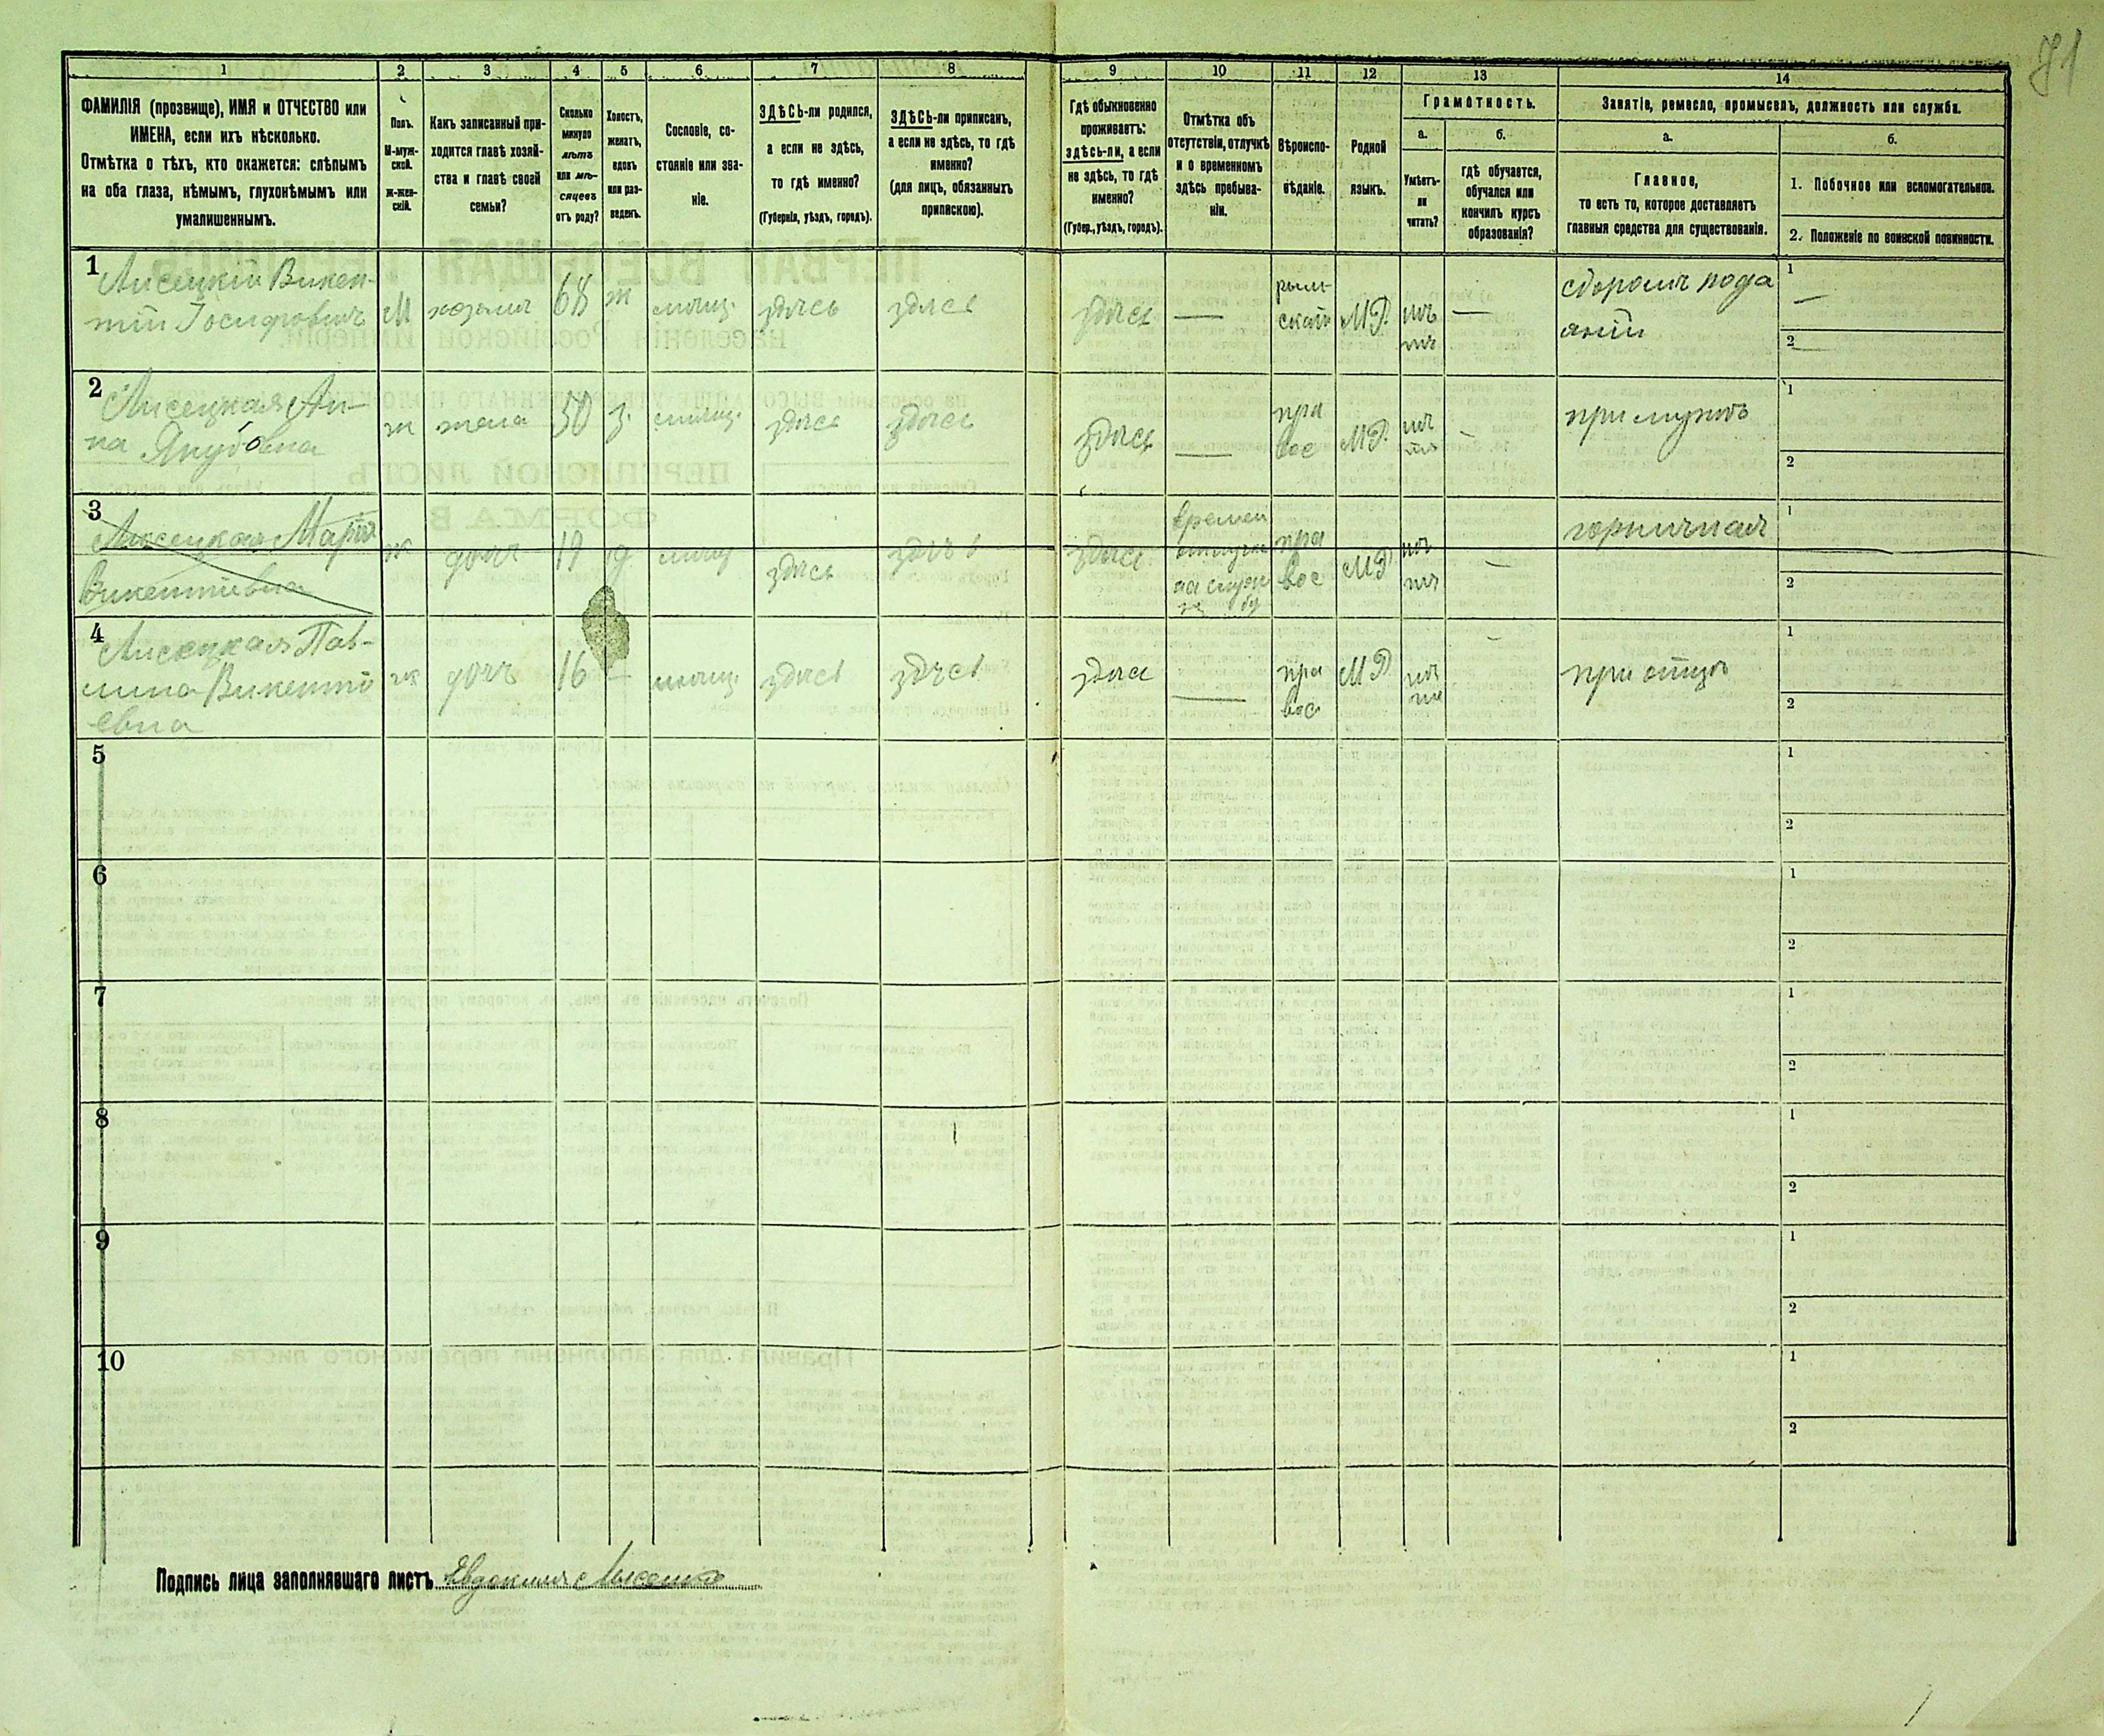 71
1 2 3 4 5 6 7 8 9 10 11 12 13 14
ФАМИЛІЯ (прозвище), ИМЯ и ОТЧЕСТВО или
ИМЕНА, если ихъ нѣсколько.
Отмѣтка о тѣхъ, кто окажется: слѣпымъ
на оба глаза, нѣмымъ, глухонѣмымъ или
умалишеннымъ.
Полъ.
М-муж-
ской.
Ж-жен-
скій.
Какъ записанный при-
ходится главѣ хозяй-
ства и главѣ своей
семьи?
Сколько
минуло
лѣтъ
или мѣ-
сяцевъ
отъ роду?
Холостъ,
женатъ,
вдовъ
или раз-
веденъ.
Сословіе, со-
стояніе или зва-
ніе.
ЗДѢСЬ-ли родился,
а если не здѣсь,
то гдѣ именно?
(Губернія, уѣздъ, городъ).
ЗДѢСЬ-ли приписанъ,
а если не здѣсь, то гдѣ
именно?
(для лицъ, обязанныхъ
припискою).
Гдѣ обыкновенно
проживаетъ:
здѣсь-ли, а если
не здѣсь, то гдѣ
именно?
(Губер., уѣздъ, городъ).
Отмѣтка объ
отсутствіи, отлучкѣ
и о временномъ
здѣсь пребыва-
ніи.
Вѣроиспо-
вѣданіе.
Родной
языкъ.
Грамотность.
а.
Умѣетъ-
ли
читать?
б.
гдѣ обучается,
обучался или
кончилъ курсъ
образованія?
Занятіе, ремесло, промыселъ, должность или служба.
а.
Главное,
то есть то, которое доставляетъ
главныя средства для существованія.
б.
1. Побочное или вспомогательное.
2. Положеніе по воинской повинности.
1
Лисецкій Викен-
тій Іосифовичъ М хозяинъ 68 ж мѣщ. здѣсь здѣсь здѣсь — рым-
скаго М.Р. нѣ-
тъ — сборомъ пода
яній
1 —
2 —
2
Лисецкая Ан-
на Якубовна ж жена 50 з. мѣщ. здѣсь здѣсь здѣсь — пра
вос М.Р. нѣ
тъ — при мужѣ
1
2
3
Лисецкая Марія
Викентіевна ж дочь 19 д мѣщ здѣсь здѣсь здѣсь времен
отлучка
на служ
бу пра
вос М.Р. нѣ
тъ — горничная
1
2
4
Лисецкая Пав-
лина Викенті
евна ж дочь 16 — мѣщ. здѣсь здѣсь здѣсь — пра
вос М.Р. нѣ
тъ — при отцѣ
1
2
5
1
2
6
1
2
7
1
2
8
1
2
9
1
2
10
1
2
Подпись лица заполнявшаго листъ Евдокимъ